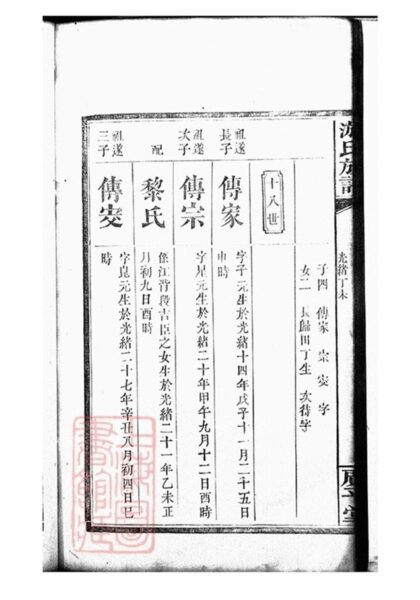 游氏族譜
光緒丁未
廣平堂
子四 傳家 宗 安 字
女二 長歸田丁生 次待字
十八世
祖遂長子
傳家
字子元生於光緒十四年戊子十一月二十五日
申時
祖遂次子
傳宗
字星元生於光緒二十年甲午九月十二日酉時
配
黎氏
係江背段吉臣之女生於光緒二十一年乙未正
月初九日酉時
祖遂三子
傳安
字崑元生於光緒二十七年辛丑八月初四日巳
時